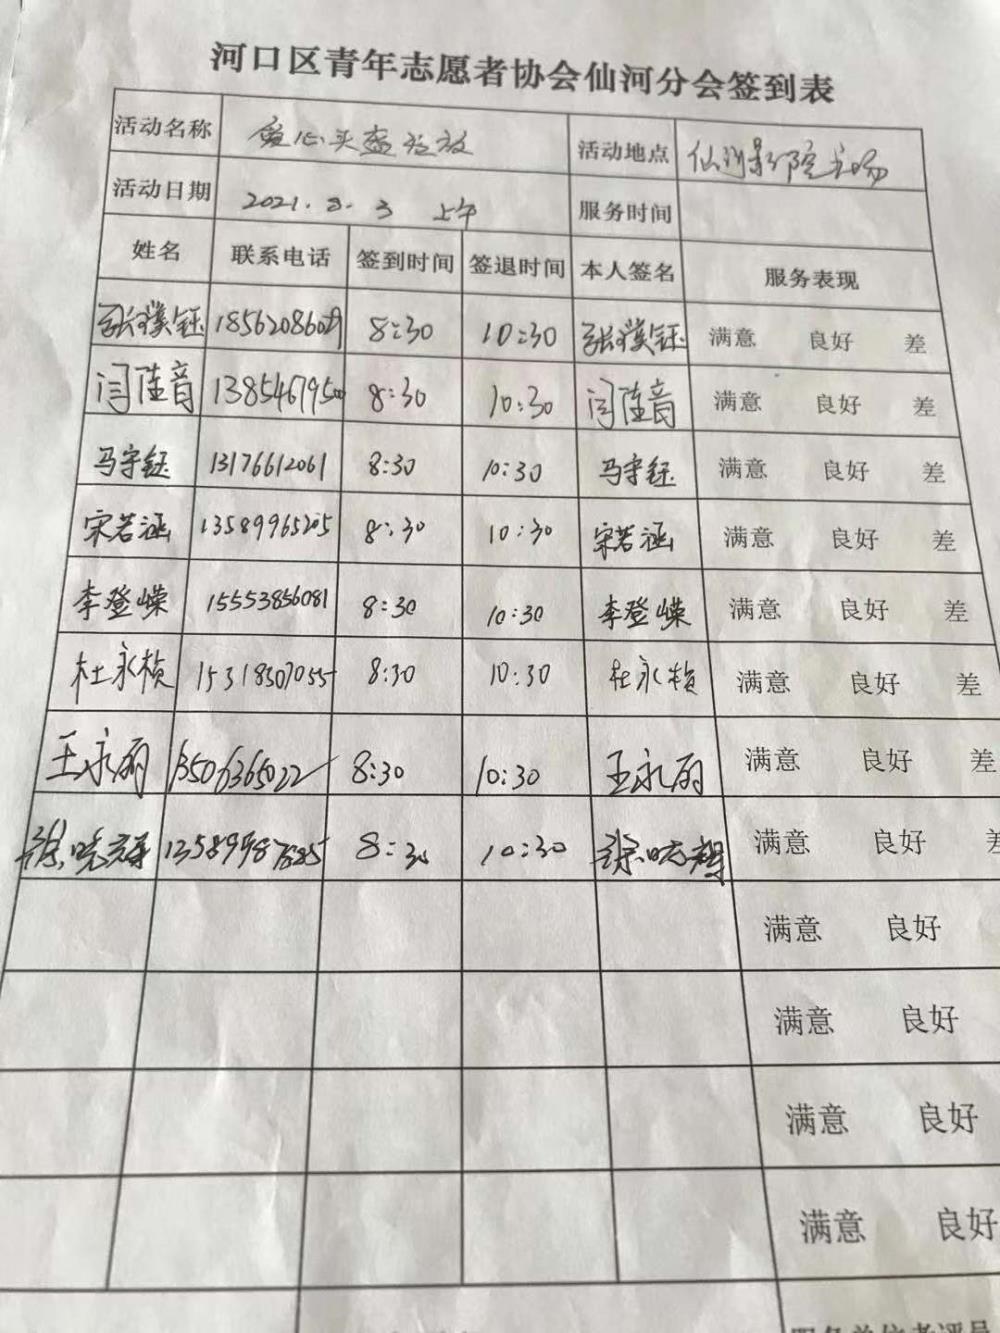 河口区青年志愿者协会仙河分会签到表
活动名称 爱心头盔发放 活动地点 仙河影院广场
活动日期 2021.8.3 上午 服务时间
姓名 联系电话 签到时间 签退时间 本人签名 服务表现
张濮钰 8:30 10:30 张濮钰 满意 良好 差
闫佳音 8:30 10:30 闫佳音 满意 良好 差
马宇钰 13176612061 8:30 10:30 马宇钰 满意 良好 差
宋若涵 13589965205 8:30 10:30 宋若涵 满意 良好 差
李登嵘 15553856081 8:30 10:30 李登嵘 满意 良好 差
杜永桢 15318507055 8:30 10:30 杜永桢 满意 良好 差
王永丽 13506365022 8:30 10:30 王永丽 满意 良好 差
徐晓 8:30 10:30 徐晓 满意 良好
满意 良好
满意 良好
满意 良好
满意 良好